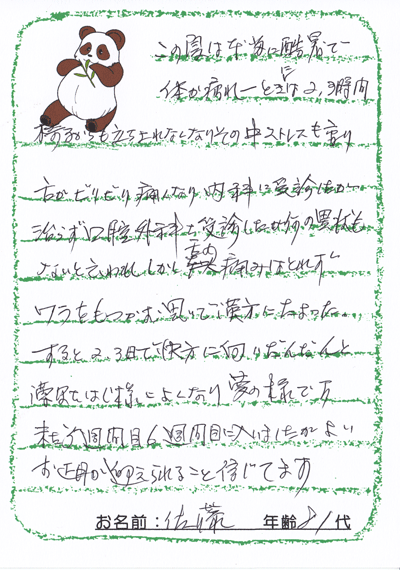 この夏は本当に酷暑で
体が疲れ一ときは2,3時間
椅子からも立ち上れなくなりその中ストレスも重り
舌がピリピリ痛くなり内科に受診したが
治らず口腔外科を受診したが何の異状も
ないと言われしかし痛みはとれず
ワラをもつかむ思いで漢方に
すると2,3日で快方に向いだんだんと
薄紙をはぐ様によくなり夢の様です
5週間目6週間目に入りましたがよい
お正月が迎えられること信じてます
お名前:佐藤 年齢 81代